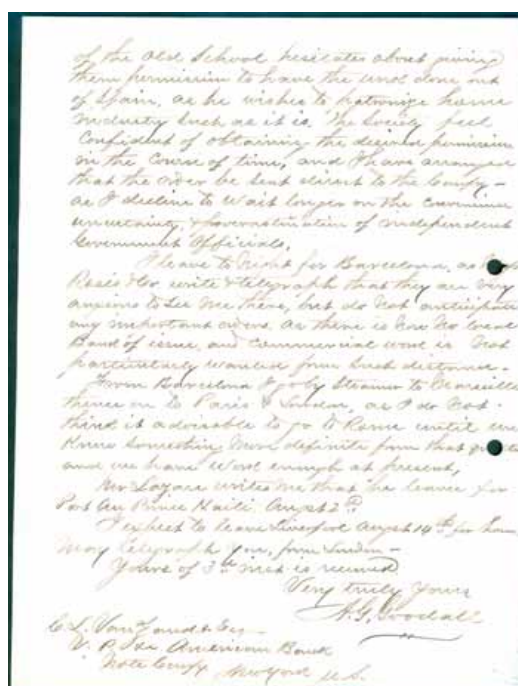 of the Old School hesitates about giving
them permission to have the work done out
of Spain, as he wishes to patronize home
industry such as it is. The Society feel
Confident of obtaining the desired permission
in the Course of time, and I have arranged
that the order be sent direct to the Compy –
as I decline to wait longer on the
uncertainty & procrastination of independent
Government Officials.
I leave to Night for Barcelona, as
& Co. write & telegraph that they are very
anxious to see me there, but do not anticipate
any important orders, as there is now no local
Bank of issue, and Commercial work is not
particularly wanted from such distance –
From Barcelona I go by Steamer to Marseille
thence on to Paris & London, as I do not
think it advisable to go to Rome until we
Know something More definite from that
and we have work enough at present,
Mr Lazare writes me that he leaves for
Port Au Prince Haiti Augst 2d
I expect to leave Liverpool Augst 14th for home
May telegraph you, from London –
Yours of 3d inst is received
Very truly Yours
A.G. Goodall
C. L. Van Zandt Esq
V. P. American Bank
Note Compy New York U.S.